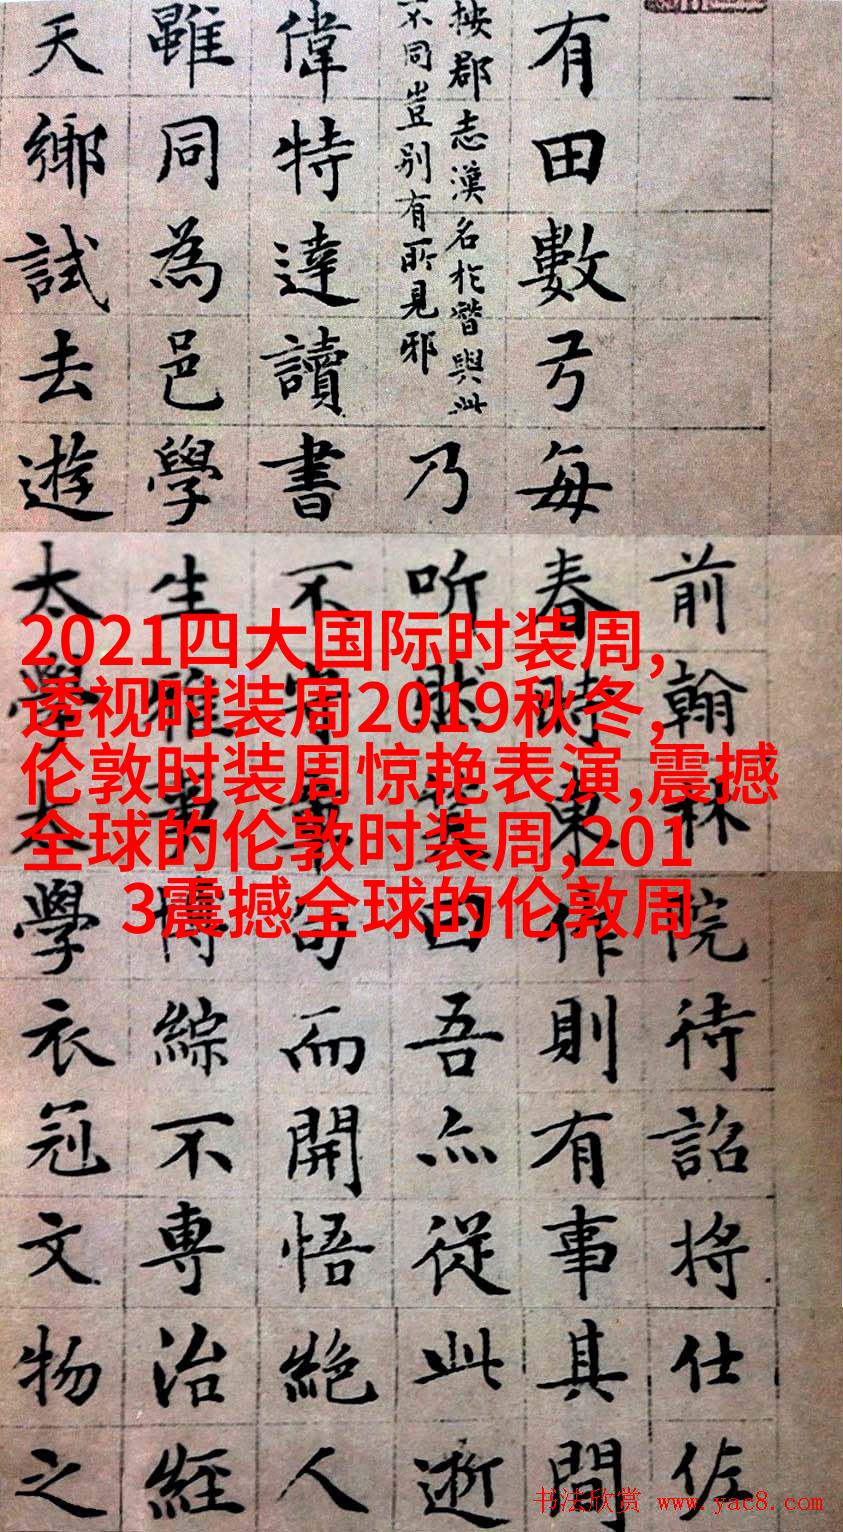 前翰林院待詔將仕佐
有田數弓每春時東作則有事其間
按郡志漢名於晉與此
不同豈别有所見邪
乃听然曰吾亦從此逝
偉特達讀書不守章句而開悟絕人
雖同為邑學生雅博綜不専治經
天鄉試去遊太學太學衣冠文物之
2021四大国际时装周,
透视时装周2019秋冬,
伦敦时装周惊艳表演,震撼
全球的伦敦时装周,201
3震撼全球的伦敦周
书法欣赏 www.yac8.com